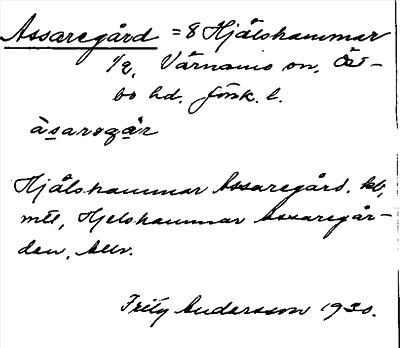 Assaregård = 8 Hjälshammar
1/2, Värnamo sn, Öst-
bo hd. Jönk. l.
àsarogàr
Hjälshammar Assaregård. kb,
mtl, Hjelshammar Assaregår-
den,
Fritz Andersson 1930.